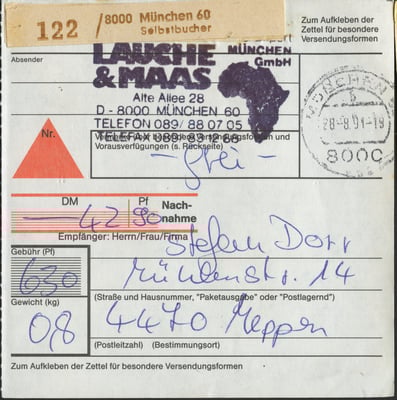 122 / 8000 München 60
Selbstbucher
Zum Aufkleben der
Zettel für besondere
Versendungsformen
Absender
LAUCHE
& MAAS
MÜNCHEN
GmbH
Alte Allee 28
D - 8000 MÜNCHEN 60
TELEFON 089/ 88 07 05
TELEFAX 089/ 83 12 88
Vorausverfügungen (s. Rückseite)
- frei -
MÜNCHEN
28.-8.91-19
8000
Nr.
DM Pf Nach-
42 90 nahme
Empfänger: Herrn/Frau/Firma
Stefan Dorr
Gebühr (Pf)
630
Mühlenstr. 14
(Straße und Hausnummer, "Paketausgabe" oder "Postlagernd")
Gewicht (kg)
0,8
4470 Meppen
(Postleitzahl) (Bestimmungsort)
Zum Aufkleben der Zettel für besondere Versendungsformen